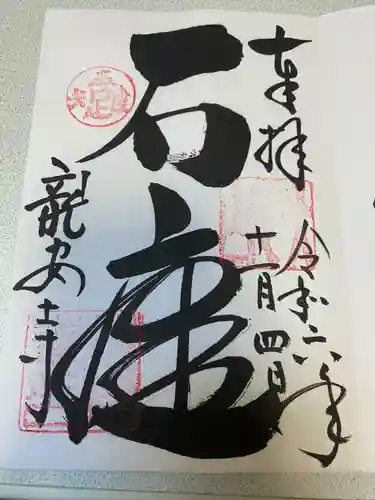 奉拝
令和六年
十一月四日
石庭
龍安寺